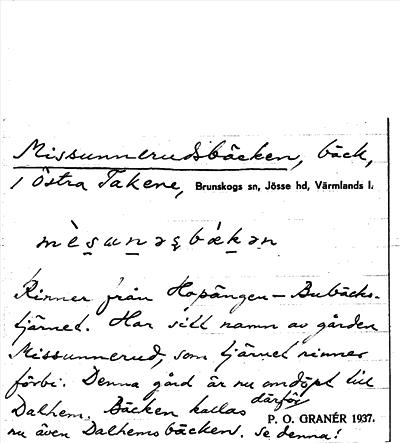 Missunnerudsbäcken, bäck,
i Östra Takene, Brunskogs sn, Jösse hd, Värmlands l.
Rinner från Hopängen – Bubäcks-
tjärnet. Har sitt namn av gården
Missunnerud, som tjärnet rinner
förbi. Denna gård är nu omdöpt till
Dalhem. Bäcken kallas därför
nu även Dalhemsbäcken. Se denna!
P. O. GRANÉR 1937.